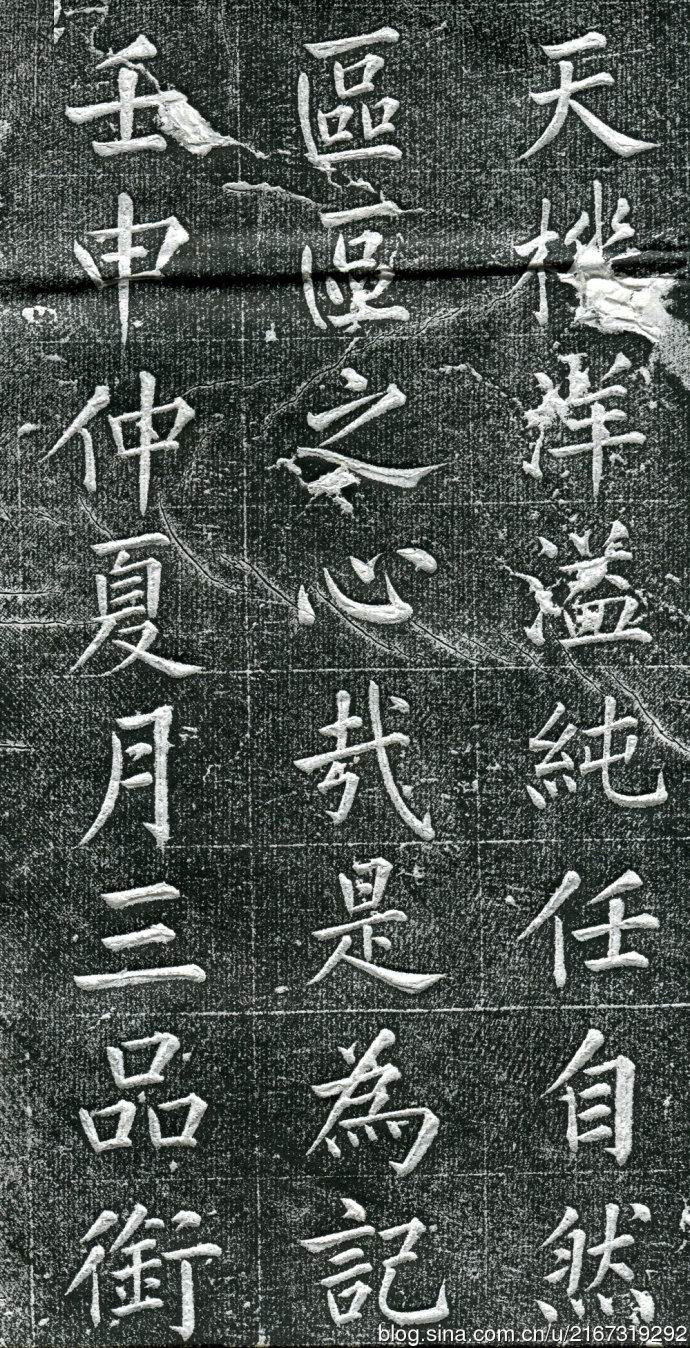 天機洋溢純任自然
區區之心哉是為記
壬申仲夏月三品銜
blog.sina.com.cn/u/2167319292